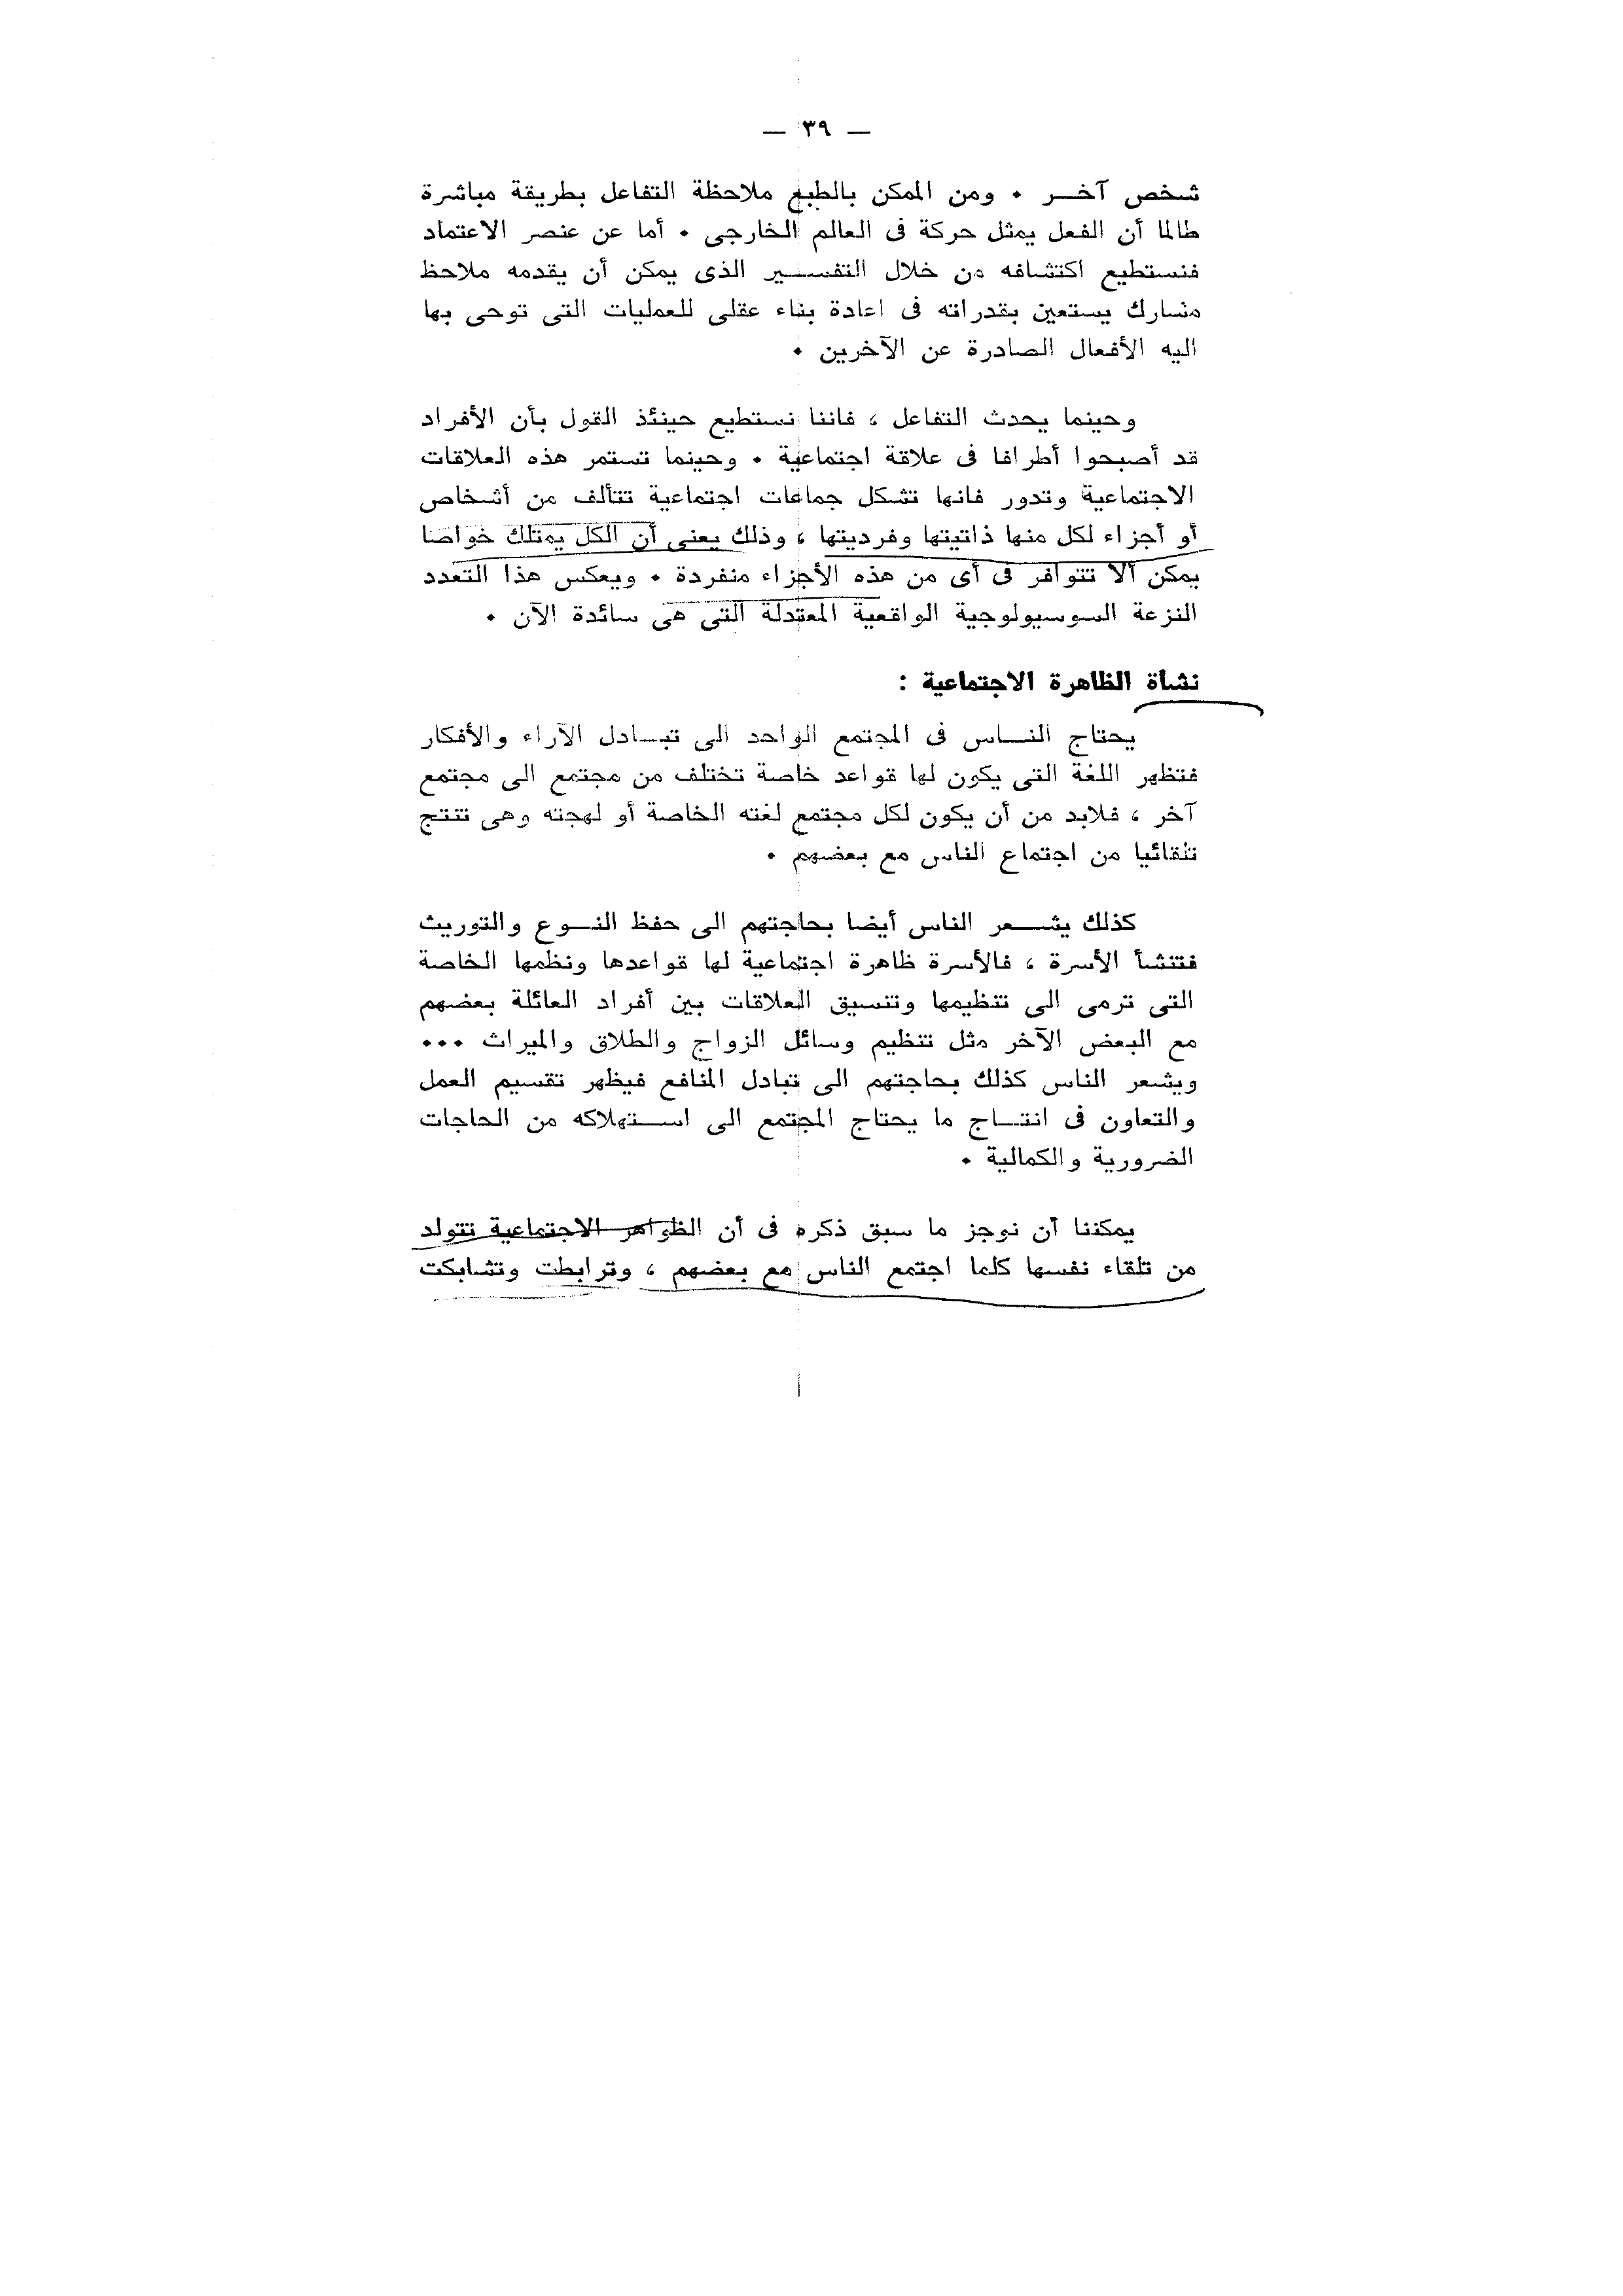 — ٣٩ —
شخص آخـــر . ومن الممكن بالطبع ملاحظة التفاعل بطريقة مباشرة
طالما أن الفعل يمثل حركة فى العالم الخارجى . أما عن عنصر الاعتماد
فنستطيع اكتشافه من خلال التفســـير الذى يمكن أن يقدمه ملاحظ
مشارك يستعين بقدراته فى اعادة بناء عقلى للعمليات التى توحى بها
اليه الأفعال الصادرة عن الآخرين .
وحينما يحدث التفاعل ، فاننا نستطيع حينئذ القول بأن الأفراد
قد أصبحوا أطرافا فى علاقة اجتماعية . وحينما تستمر هذه العلاقات
الاجتماعية وتدور فانها تشكل جماعات اجتماعية تتألف من أشخاص
أو أجزاء لكل منها ذاتيتها وفرديتها ، وذلك يعنى أن الكل يمتلك خواصا
يمكن ألا تتوافر فى أى من هذه الأجزاء منفردة . ويعكس هذا التعدد
النزعة السوسيولوجية الواقعية المعتدلة التى هى سائدة الآن .
نشأة الظاهرة الاجتماعية :
يحتاج النـــاس فى المجتمع الواحد الى تبـادل الآراء والأفكار
فتظهر اللغة التى يكون لها قواعد خاصة تختلف من مجتمع الى مجتمع
آخر ، فلابد من أن يكون لكل مجتمع لغته الخاصة أو لهجته وهى تنتج
تلقائيا من اجتماع الناس مع بعضهم .
كذلك يشـــعر الناس أيضا بحاجتهم الى حفظ النــوع والتوريث
فتنشأ الأسرة ، فالأسرة ظاهرة اجتماعية لها قواعدها ونظمها الخاصة
التى ترمى الى تنظيمها وتنسيق العلاقات بين أفراد العائلة بعضهم
مع البعض الآخر مثل تنظيم وسائل الزواج والطلاق والميراث ...
ويشعر الناس كذلك بحاجتهم الى تبادل المنافع فيظهر تقسيم العمل
والتعاون فى انتـــاج ما يحتاج المجتمع الى اســتهلاكه من الحاجات
الضرورية والكمالية .
يمكننا أن نوجز ما سبق ذكره فى أن الظواهر الاجتماعية تتولد
من تلقاء نفسها كلما اجتمع الناس مع بعضهم ، وترابطت وتشابكت